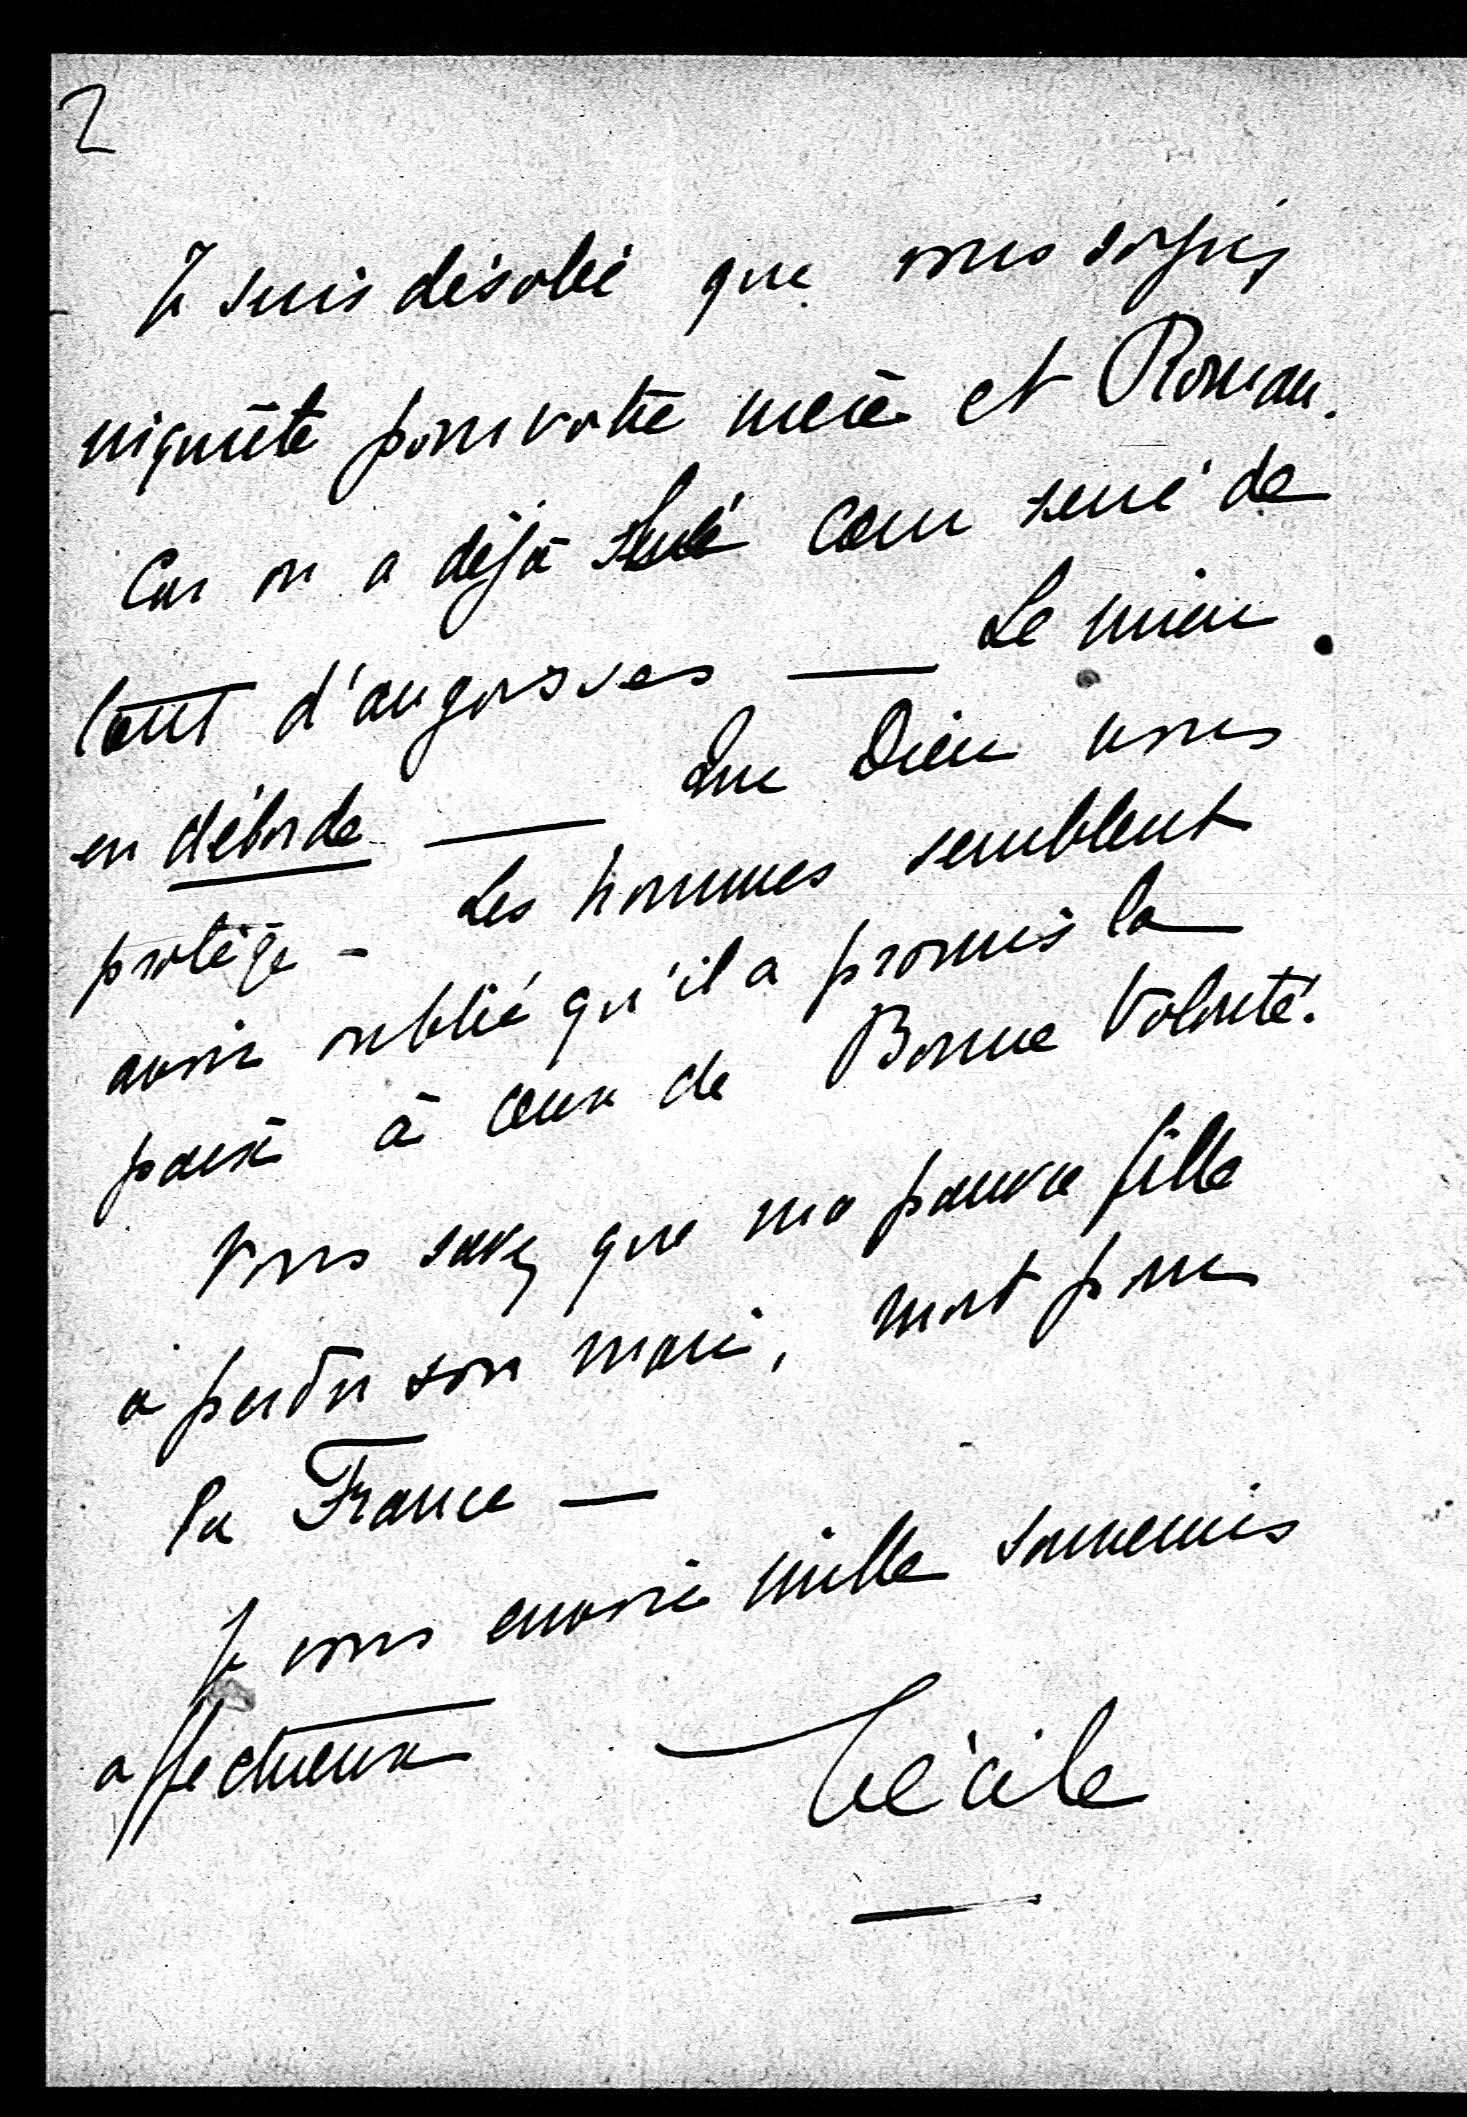 2
Je suis désolée que vous soyiez
inquiète pour votre mère et Roman.
Car on a déjà le cœur serré de
tant d'angoisses — Le mien
en déborde — Que Dieu vous
protège - Les hommes semblent
avoir oublié qu'il a promis la
paix à ceux de Bonne Volonté.
Vous savez que ma pauvre fille
a perdu son mari, mort pour
la France —
Je vous envoie mille souvenirs
affectueux
Cécile